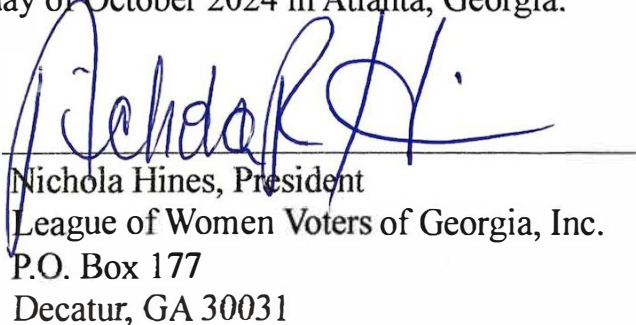 day of October 2024 in Atlanta, Georgia.
Nichola R Hi
Nichola Hines, President
League of Women Voters of Georgia, Inc.
P.O. Box 177
Decatur, GA 30031